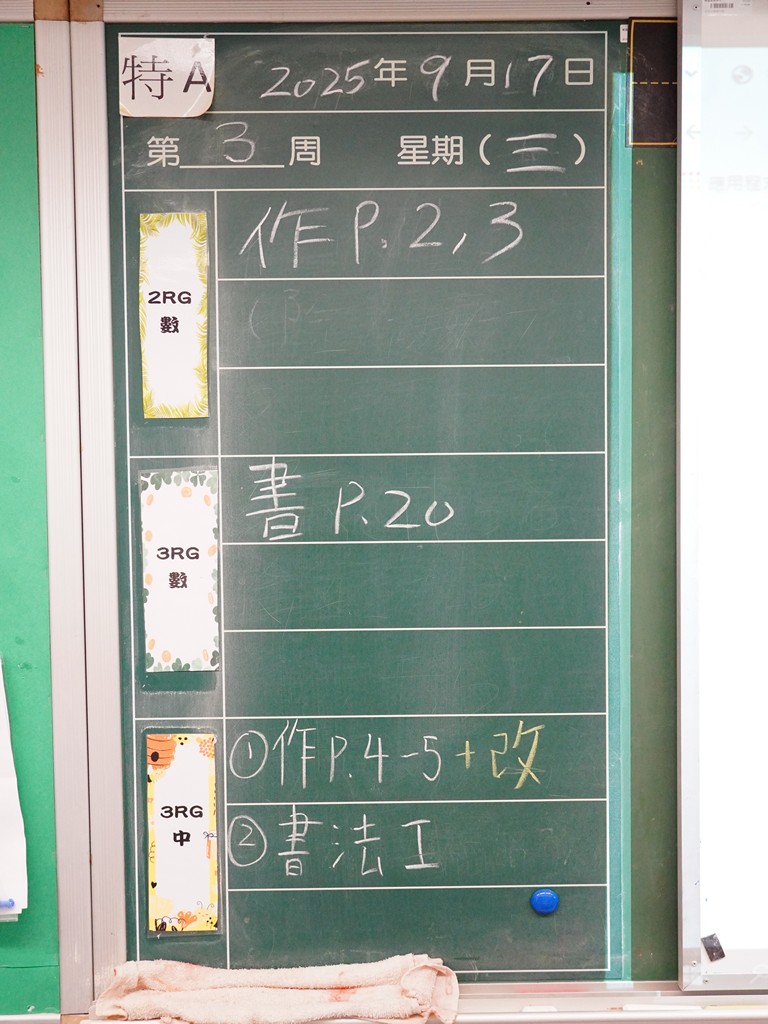 特A
2025年9月17日
第3周 星期(三)
2RG
數
作P.2,3
3RG
數
書P.20
3RG
中
①作P.4-5+改
②書法工